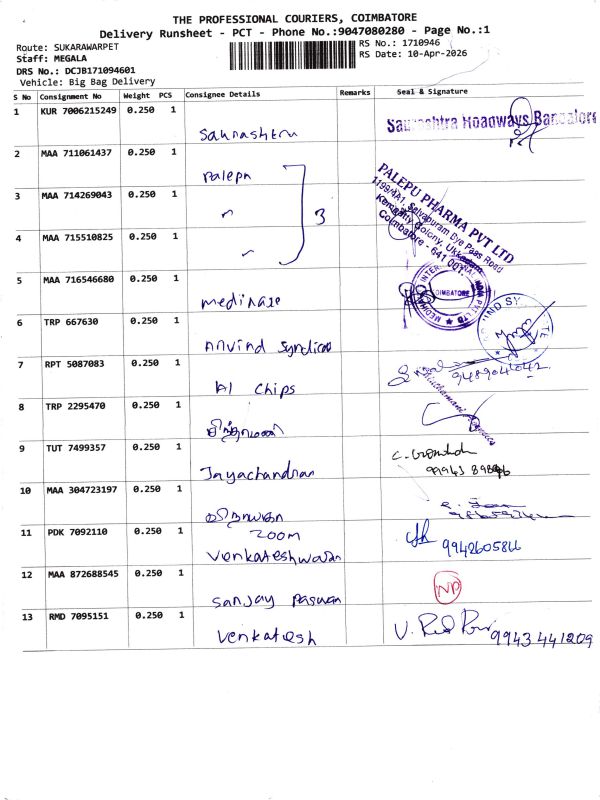 THE PROFESSIONAL COURIERS, COIMBATORE
Delivery Runsheet - PCT - Phone No.:9047080280 - Page No.:1
Route: SUKARAWARPET
Staff: MEGALA
DRS No.: DCJB171094601
Vehicle: Big Bag Delivery
RS No.: 1710946
RS Date: 10-Apr-2026
S No Consignment No Weight PCS Consignee Details Remarks Seal & Signature
1 KUR 7006215249 0.250 1
Saurashtra Roadways Bangalore
2 MAA 711061437 0.250 1
Palepu
3 MAA 714269043 0.250 1
3
4 MAA 715510825 0.250 1
PALEPU PHARMA PVT LTD
1199/4A1, Selvapuram Bye Pass Road
Coimbatore - 641 001.
5 MAA 716546680 0.250 1
COIMBATORE
6 TRP 667630 0.250 1
Arvind
7 RPT 5087083 0.250 1
AI Chips
9489041042
8 TRP 2295470 0.250 1
9 TUT 7499357 0.250 1
Jayachandran
10 MAA 304723197 0.250 1
11 PDK 7092110 0.250 1
zoom
Venkateshwaran
12 MAA 872688545 0.250 1
Sanjay Paswan
NP
13 RMD 7095151 0.250 1
Venkatesh
9943441209